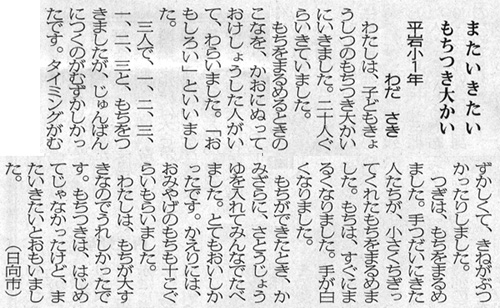 またいきたい
もちつき大かい
平岩小1年
わだ さき
わたしは、子どもきょ
うしつのもちつき大かい
にいきました。二十人ぐ
らいきていました。
もちをまるめるときの
こなを、かおにぬって
おけしょうした人がい
て、わらいました。「お
もしろい」といいまし
た。
三人で、一、二、三、
一、二、三と、もちをつ
きましたが、じゅんばん
につくのがむずかしかっ
たです。タイミングがむ
ずかしくて、きねがぶつ
かったりしました。
つぎは、もちをまるめ
ました。手つだいにきた
人たちが、小さくちぎっ
てくれたもちをまるめま
した。もちは、すぐにま
るくなりました。手が白
くなりました。
もちができたとき、か
みざらに、さとうじょう
ゆを入れてみんなでたべ
ました。とてもおいしか
ったです。かえりには、
おみやげのもちも十こぐ
らいもらいました。
わたしは、もちが大す
きなのでうれしかったで
す。もちつきは、はじめ
てじゃなかったけど、ま
たいきたいとおもいまし
た。 (日向市)